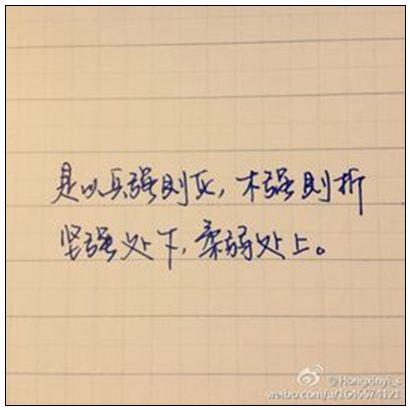 是以兵强则灭,木强则折
坚强处下,柔弱处上。